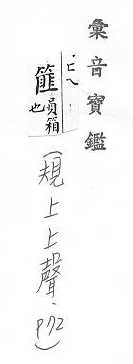 彙音寶鑑
篚員箱也
(規上上聲, P72)